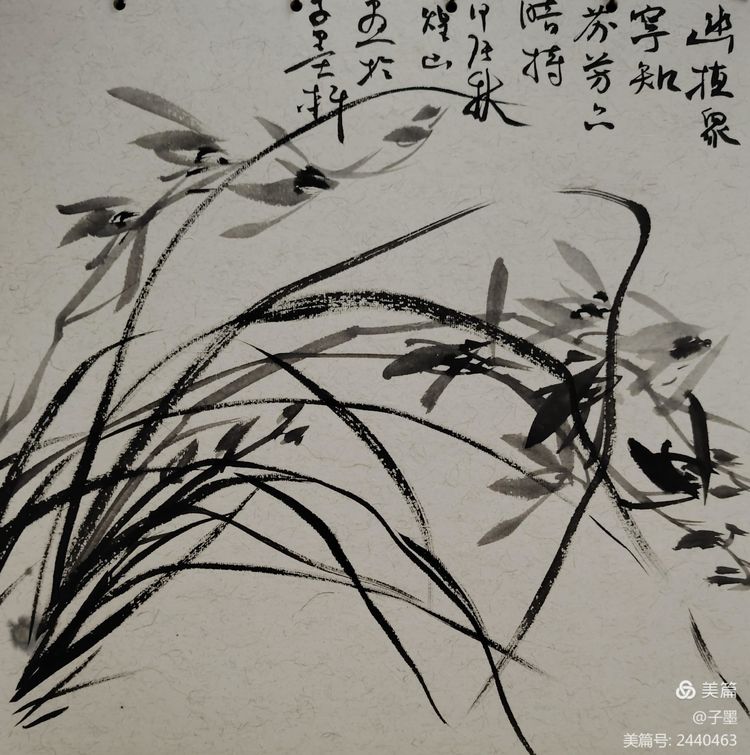 幽植眾
寧知
芬芳只
暗持
甲辰秋
煌山
画於
子墨轩
美篇
@子墨
美篇号: 2440463